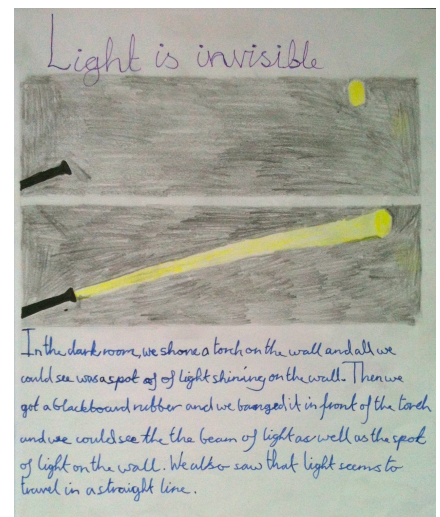 Light is invisible
In the dark room, we shone a torch on the wall and all we
could see was a spot of of light shining on the wall. Then we
got a blackboard rubber and we banged it in front of the torch
and we could see the the beam of light as well as the spot
of light on the wall. We also saw that light seems to
travel in a straight line.